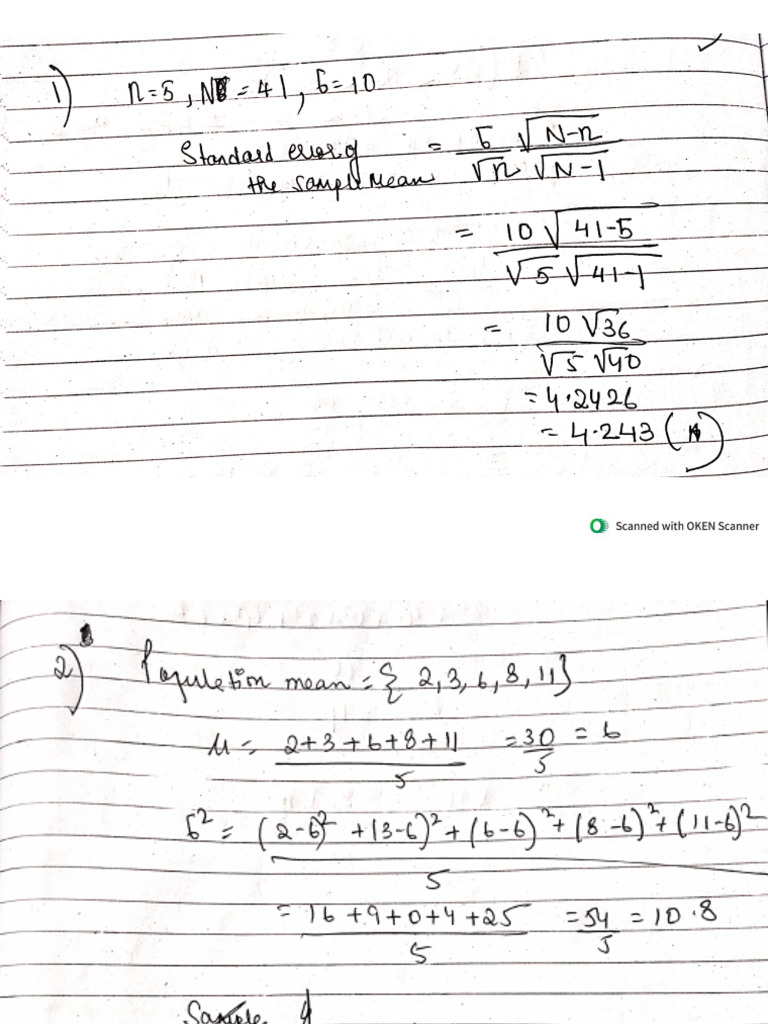 1) n=5, N = 41, б=10
Standard error of = б √N-n
the sample mean √n √N-1
= 10 √41-5
√5 √41-1
= 10 √36
√5 √40
= 4.2426
= 4.243
Scanned with OKEN Scanner
2) Population mean = { 2, 3, 6, 8, 11}
μ = 2+3+6+8+11 = 30 = 6
5 5
б² = (2-6)² + (3-6)² + (6-6)² + (8-6)² + (11-6)²
5
= 16+9+0+4+25 = 54 = 10.8
5 5